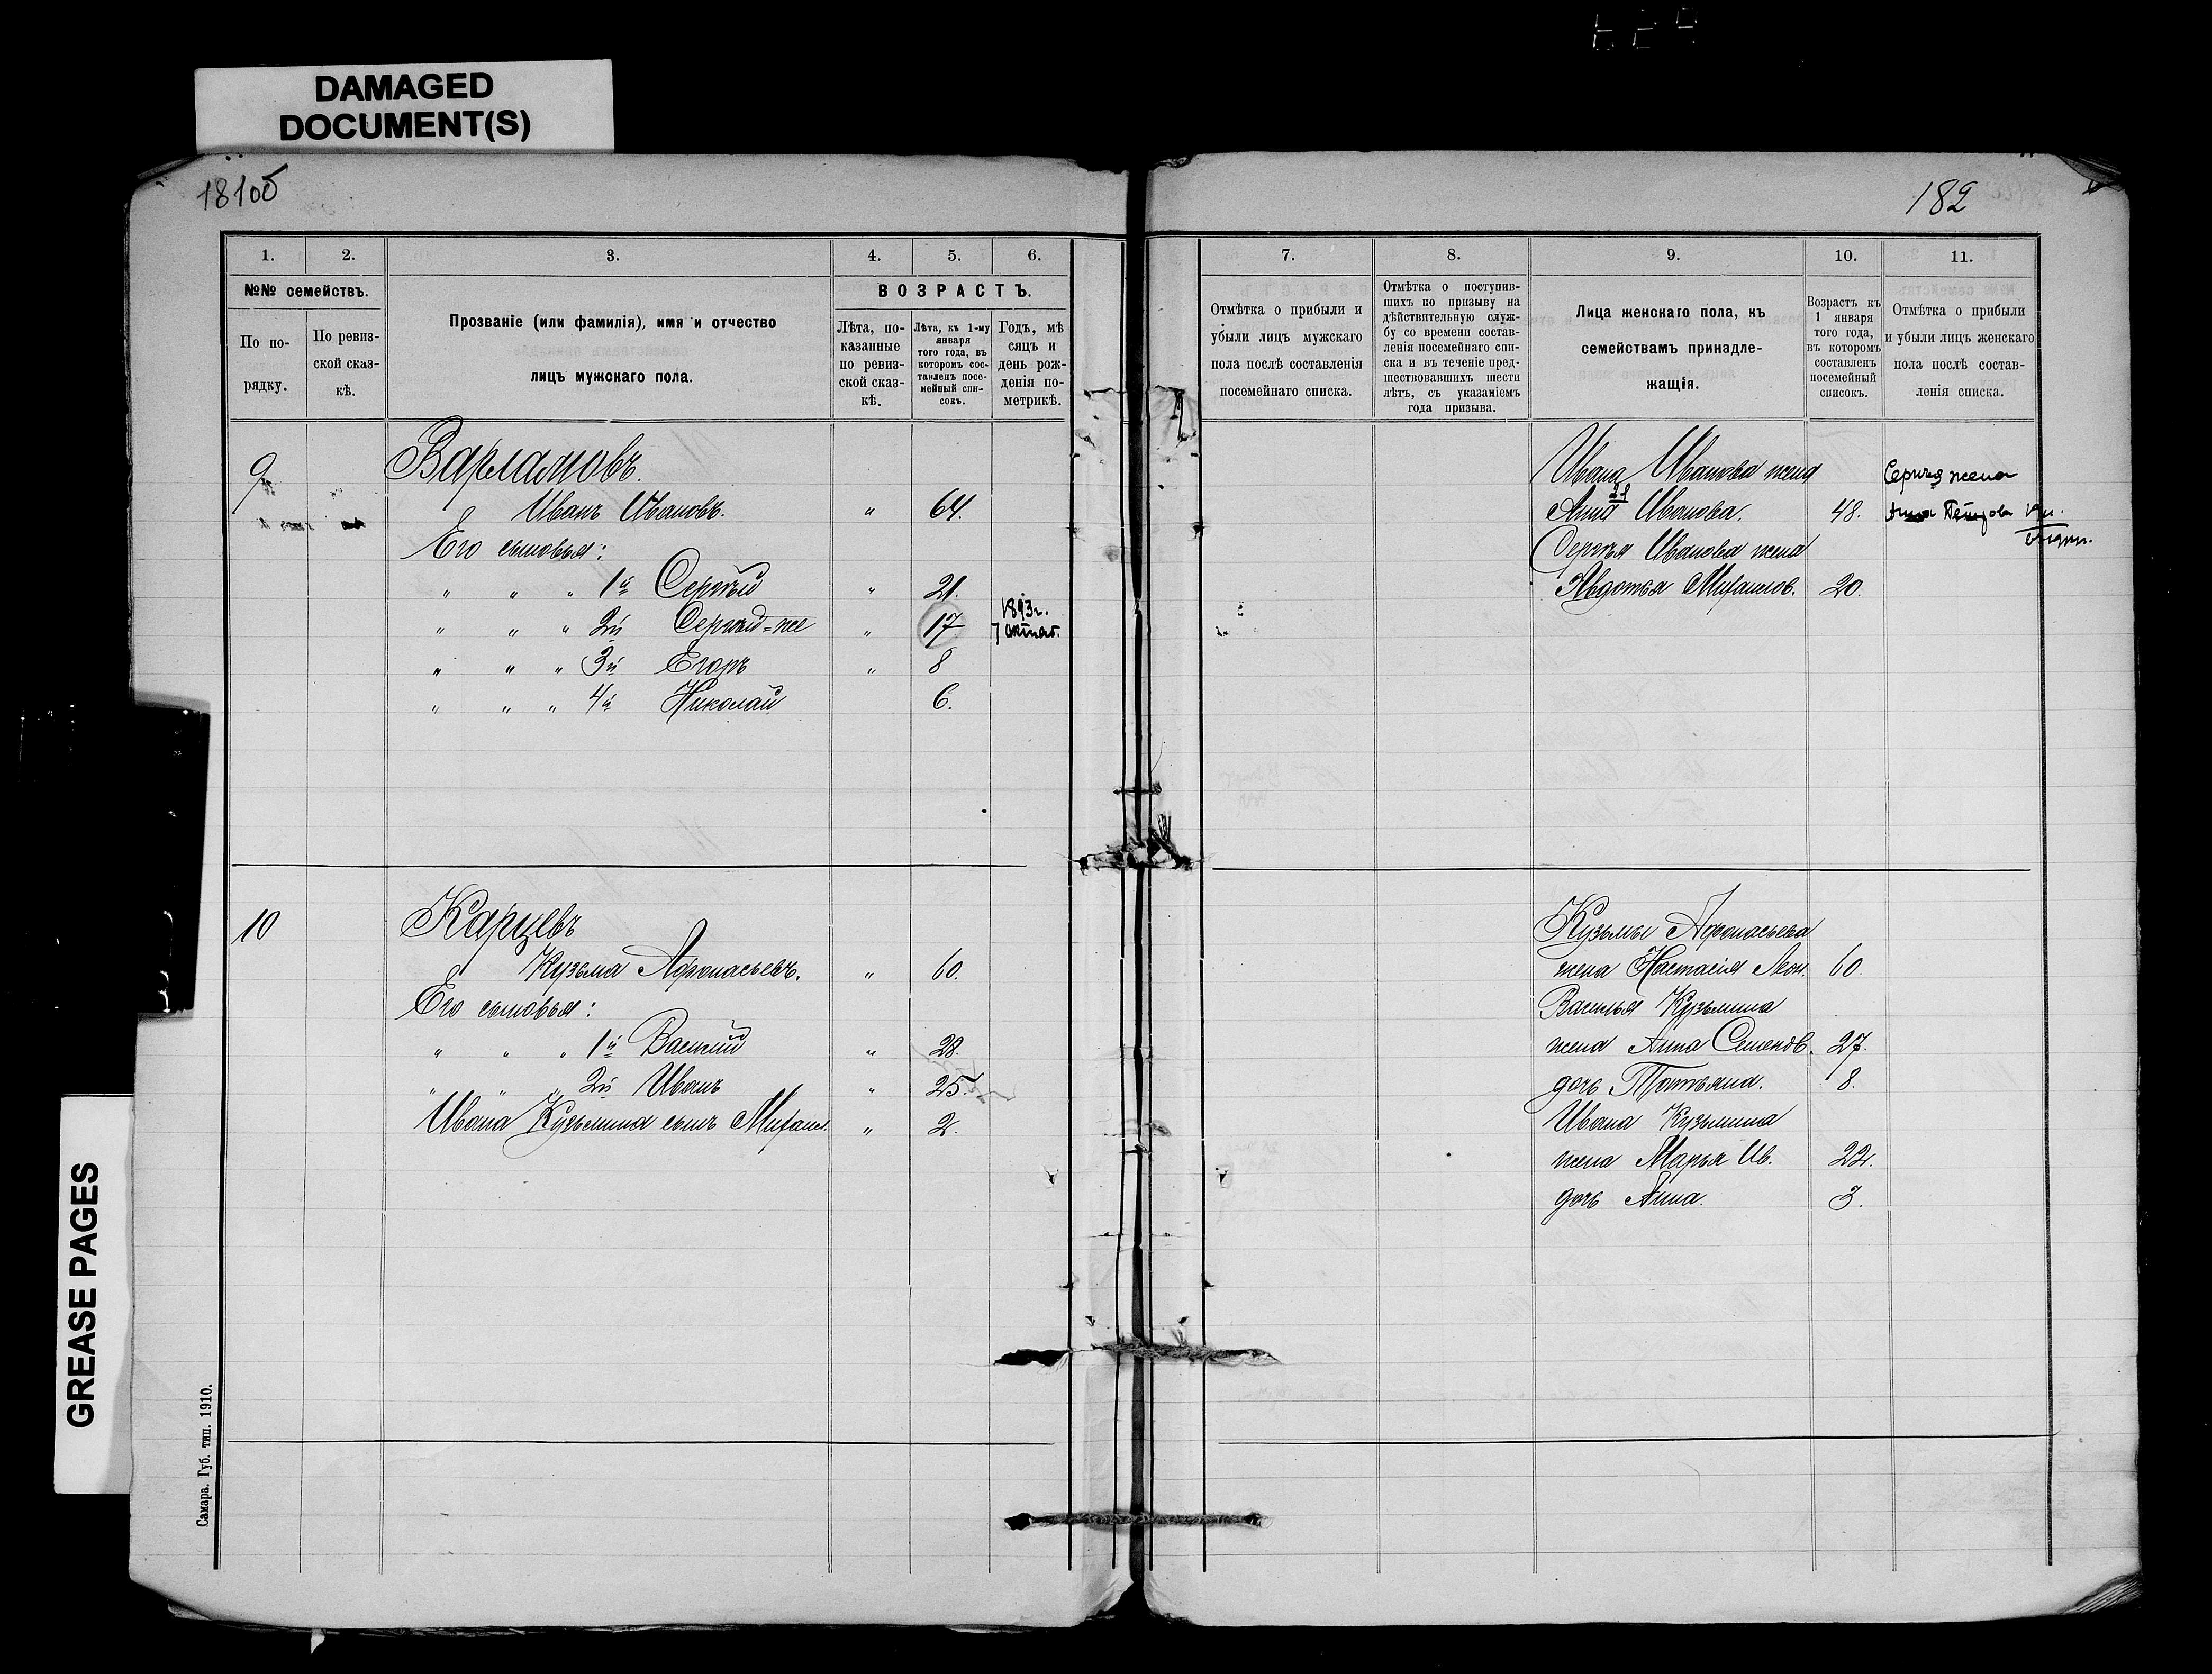 DAMAGED
DOCUMENT(S)
GREASE PAGES
181об
1. 2. 3. 4. 5. 6.
№№ семействъ.
По по-
рядку.
По ревиз-
ской сказ-
кѣ.
Прозваніе (или фамилія), имя и отчество
лицъ мужскаго пола.
ВОЗРАСТЪ.
Лѣта, по-
казанные
по ревиз-
ской сказ-
кѣ.
Лѣта, къ 1-му
января
того года, въ
которомъ сос-
тавленъ посе-
мейный спи-
сокъ.
Годъ, мѣ
сяцъ и
день рож-
денія по-
метрикѣ.
9 Варламовъ.
Иванъ Ивановъ. " 64.
Его сыновья:
" " " 1й Сергѣй " 21.
" " " 2й Сергѣй-же " 17 1893г. 7 октяб.
" " " 3й Егоръ " 8
" " " 4й Николай 6.
10 Карцевъ
Кузьма Афонасьевъ. " 60.
Его сыновья:
" " " 1й Василій " 28.
" " " 2й Иванъ " 25.
Ивана Кузьмина сынъ Михаил. " 2.
Самара. Губ. тип. 1910.
182
7. 8. 9. 10. 11.
Отмѣтка о прибыли и
убыли лицъ мужскаго
пола послѣ составленія
посемейнаго списка.
Отмѣтка о поступив-
шихъ по призыву на
дѣйствительную служ-
бу со времени состав-
ленія посемейнаго спи-
ска и въ теченіе пред-
шествовавшихъ шести
лѣтъ, съ указаніемъ
года призыва.
Лица женскаго пола, къ
семействамъ принадле-
жащія.
Возрастъ къ
1 января
того года,
въ которомъ
составленъ
посемейный
списокъ.
Отмѣтка о прибыли
и убыли лицъ женскаго
пола послѣ состав-
ленія списка.
Ивана Иванова жена Сергѣя жена
Анна Ивановa. 48. Анна Петрова
Сергѣя Иванова жена
Авдотья Михаилов. 20.
Кузьмы Афонасьева
жена Настасія Леон. 60.
Василья Кузьмина
жена Анна Семенов. 27.
дочь Татьяна. 8.
Ивана Кузьмина
жена Марья Ив. 22.
дочь Анна. 3.